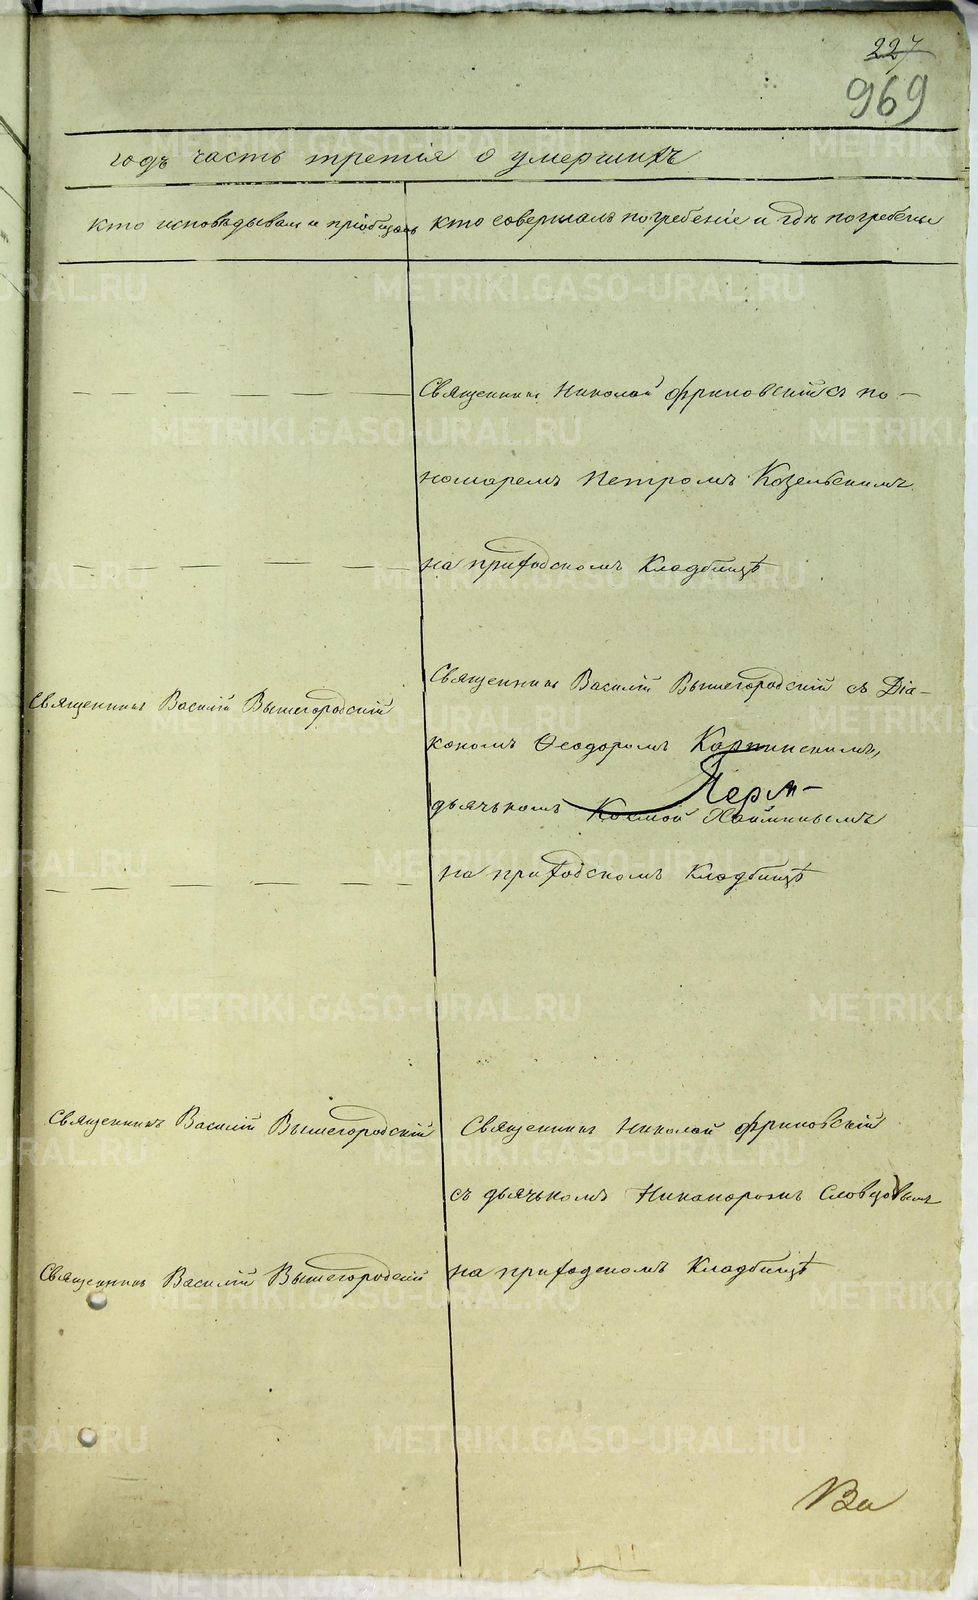 227
969
годъ часть третія о умершихъ
кто исповѣдывалъ и пріобщалъ
кто совершалъ погребеніе и гдѣ погребены
Священникъ Николай Фриновскій съ по-
номаремъ Петромъ Козельскимъ
на приходскомъ Кладбищѣ
Священникъ Василій Вышегородскій
Священникъ Василій Вышегородскій съ Діа-
кономъ Ѳеодоромъ Карпинскимъ,
Перм-
дьячькомъ Космой
на приходскомъ Кладбищѣ
Священникъ Василій Вышегородскій
Священникъ Николай Фриновскій
съ дьячькомъ Никаноромъ Словцовымъ
Священникъ Василій Вышегородскій
на приходскомъ Кладбищѣ
Ва
METRIKI.GASO-URAL.RU